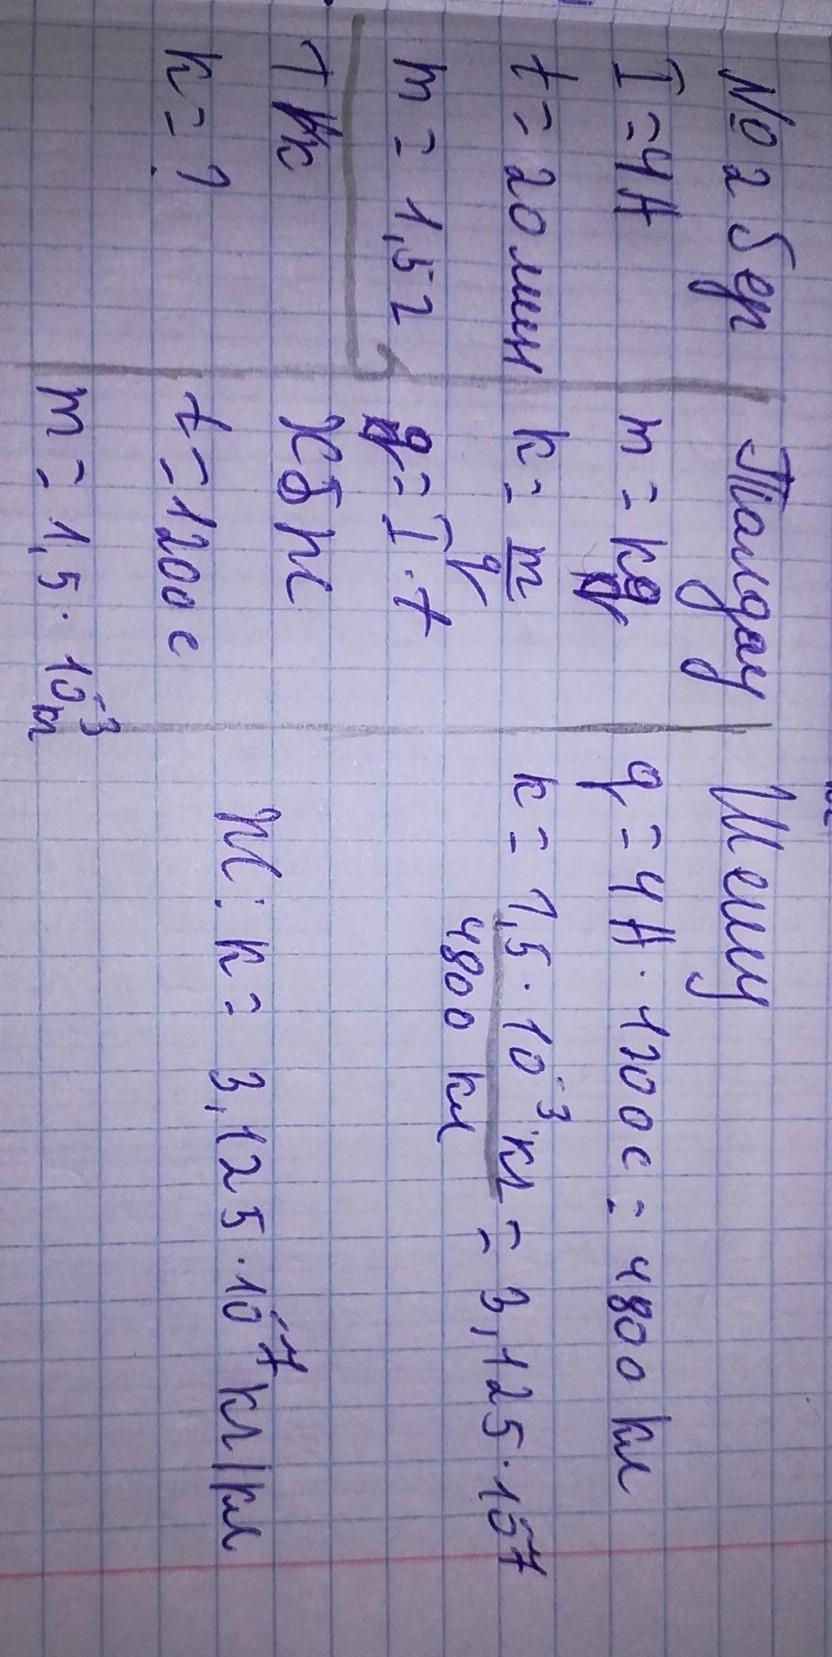 №2 бер
I = 4A
t = 20 мин
m = 1,5 г
Т/к
k = ?
Талдау
m = kq
k = m/q
q = I · t
ХБЖ
t = 1200 с
m = 1,5 · 10⁻³
Шешу
q = 4A · 1200 с = 4800 кл
k = 1,5 · 10⁻³ кг / 4800 кл = 3,125 · 10⁻⁷
Ж: k = 3,125 · 10⁻⁷ кг/кл